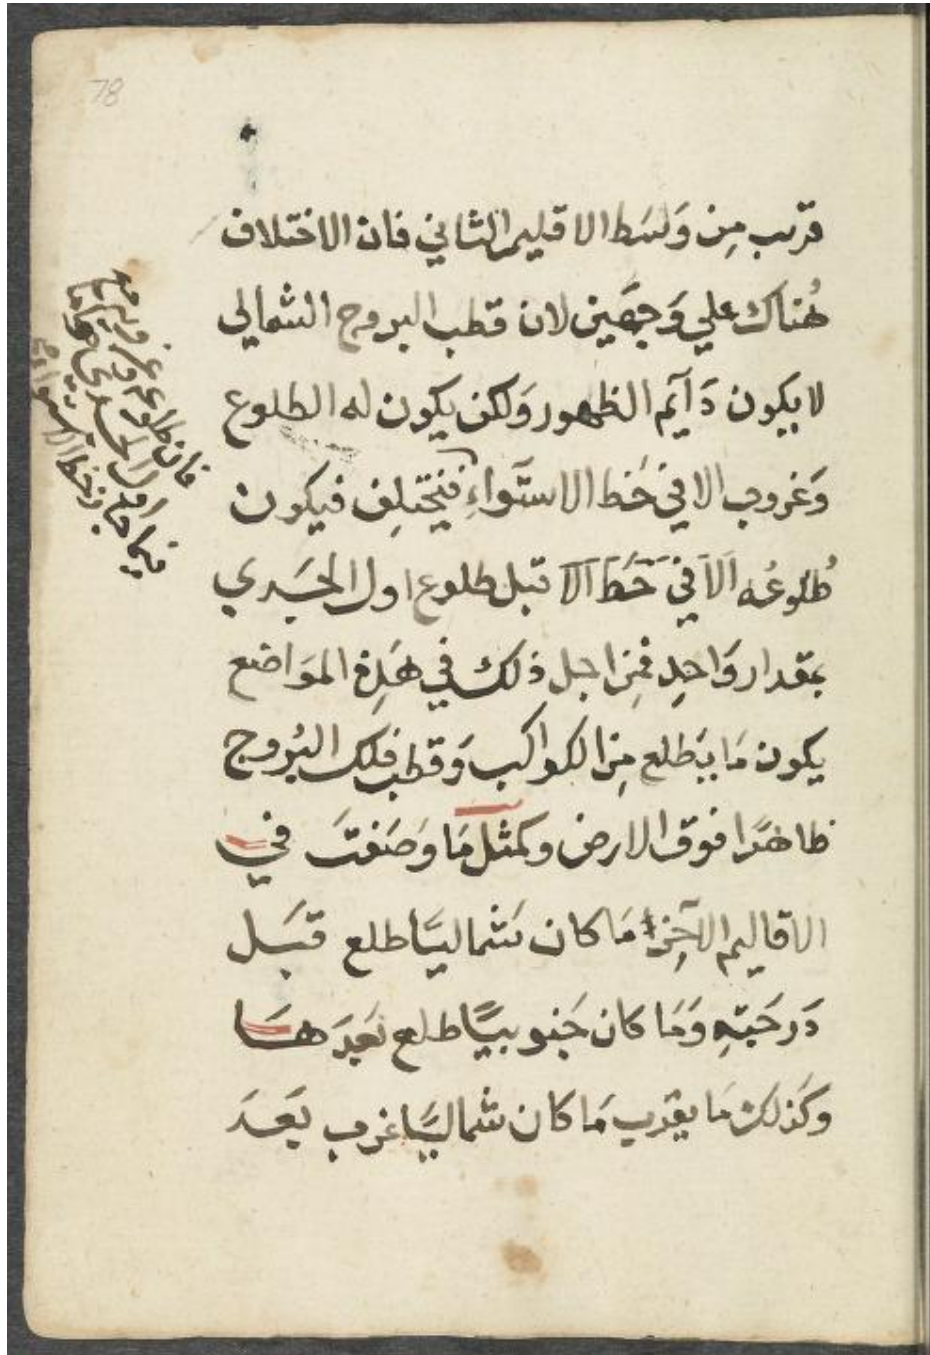 78
قرب من وَسَط الاقليم الثاني فان الاختلاف
هُناك علي وَجهَين لان قطب البروج الشمالي
لا يكون دَآيم الظهور وَلكن يكون له الطلوع
وَغروب الا في خَط الاستَواءِ فيختلِف فيكون
طُلوعُه الاَ في خَط الاَ قبل طلوع اول الجَدي
بمقدار وَاحِدٍ فمِن اجل ذلك في هَذِهِ الموَاضع
يكون مَا يَطلع مِن الكواكب وَقطب فلك البُروج
ظاهرًا فوق الارض وكمثل مَا وَصَفتَ في
الاقاليم الاخِر مَا كان شماليًا طلع قبَل
دَرجَتِهِ وَمَا كان جَنوبيًا طلع بَعدَهَا
وَكَذلك مَا يغرب مَا كان شماليًا غرب بَعدَ
فان طلوعه
اول الجدي
فيما
خط الاستواء